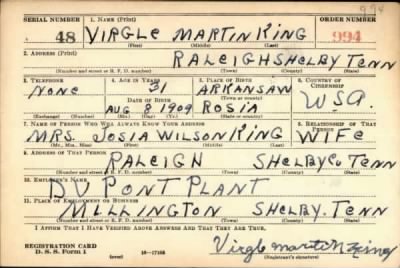 994
SERIAL NUMBER 1. NAME (Print) ORDER NUMBER
48 VIRGLE MARTIN KING 994
(First) (Middle) (Last)
2. ADDRESS (Print)
RALEIGH SHELBY TENN
(Number and street or R. F. D. number) (Town) (County) (State)
3. TELEPHONE 4. AGE IN YEARS 5. PLACE OF BIRTH 6. COUNTRY OF CITIZENSHIP
NONE 31 ARKANSAW
DATE OF BIRTH (Town or county)
AUG 8 1909 ROSIA USA.
(Exchange) (Number) (Mo.) (Day) (Yr.) (State or country)
7. NAME OF PERSON WHO WILL ALWAYS KNOW YOUR ADDRESS 8. RELATIONSHIP OF THAT PERSON
MRS. JOSIA WILSON KING WIFE
(Mr., Mrs., Miss) (First) (Middle) (Last)
9. ADDRESS OF THAT PERSON
RALEIGH SHELBY Co TENN
(Number and street or R. F. D. number) (Town) (County) (State)
10. EMPLOYER'S NAME
DU PONT PLANT
11. PLACE OF EMPLOYMENT OR BUSINESS
MILLINGTON SHELBY. TENN
(Number and street or R. F. D. number) (Town) (County) (State)
I AFFIRM THAT I HAVE VERIFIED ABOVE ANSWERS AND THAT THEY ARE TRUE.
REGISTRATION CARD
D. S. S. Form 1 (over) 16—17105 Virgle martin King
(Registrant's signature)